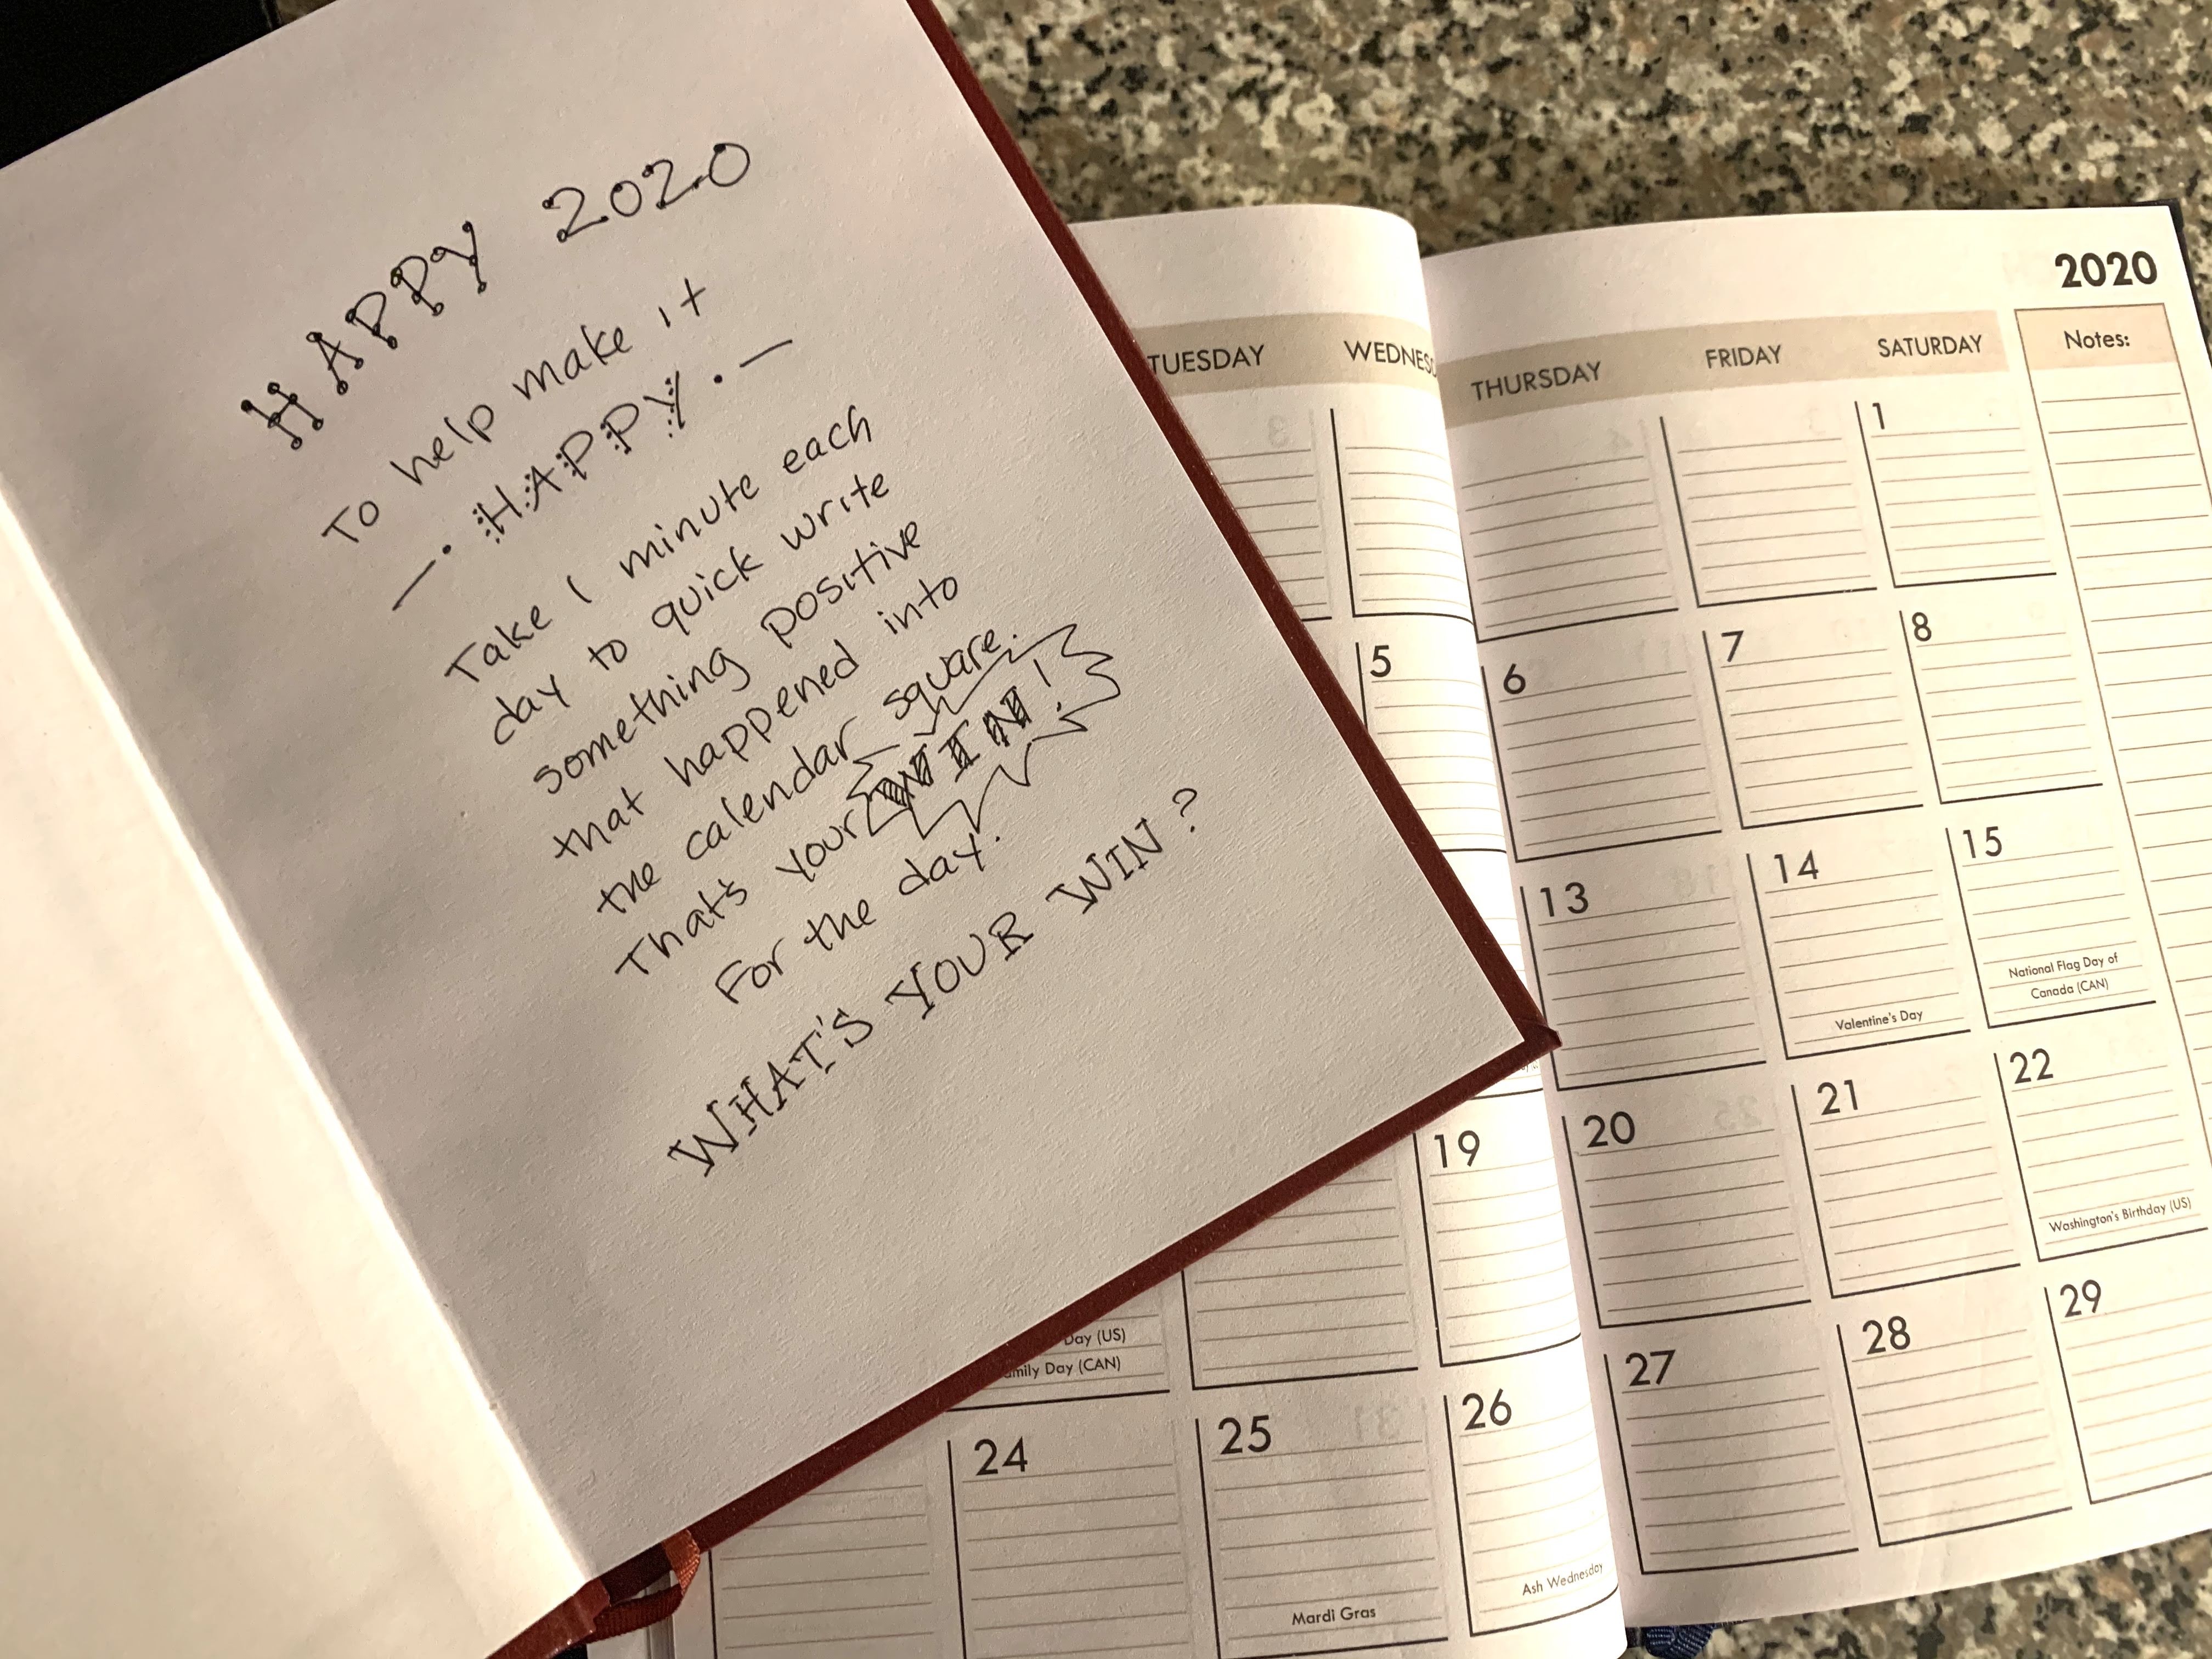 HAPPY 2020
To help make it
—·HAPPY·—
Take 1 minute each
day to quick write
something positive
that happened into
the calendar square.
That's your WIN!
For the day.
WHAT'S YOUR WIN?
2020
TUESDAY WEDNES THURSDAY FRIDAY SATURDAY Notes:
1
5 6 7 8
13 14 15
Valentine's Day National Flag Day of
Canada (CAN)
19 20 21 22
Day (US) Washington's Birthday (US)
Day (CAN)
24 25 26 27 28 29
Mardi Gras Ash Wednesday